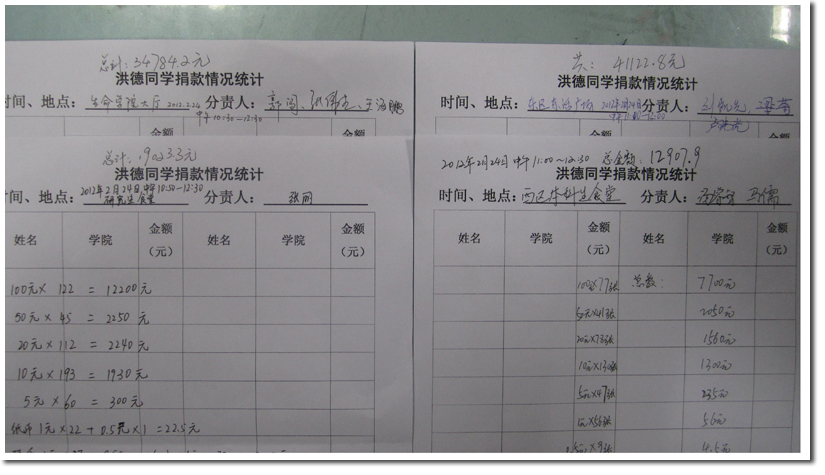 总计：34784.2元
洪德同学捐款情况统计
时间、地点：生命学院大厅 2012.2.24 分责人：
中午10:30-12:30
金额
共：41122.8元
洪德同学捐款情况统计
时间、地点： 分责人：
金额
总计：
洪德同学捐款情况统计
2012年2月24日中午10:50-12:30
时间、地点：研究生食堂 分责人：张丽
姓名 学院 金额（元） 姓名 学院 金额（元）
100元× 122 = 12200元
50元× 45 = 2250元
20元×112 = 2240元
10元×193 = 1930元
5元×60 = 300元
纸币 1元×22 + 0.5元×1 = 22.5元
2012年2月24日中午11:00~12:30 总金额：12907.9
洪德同学捐款情况统计
时间、地点：西区本科生食堂 分责人： 马儒
姓名 学院 金额（元） 姓名 学院 金额（元）
100元×77张 总数： 7700元
50元×41张 2050元
20元×78张 1560元
10元×130张 1300元
5元×47张 235元
1元×56张 56元
0.5元×9张 4.5元